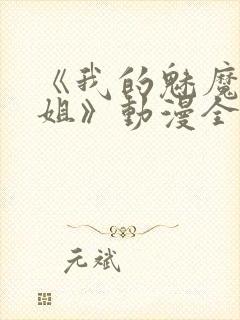 《我的魅魔
姐》動漫全
元斌